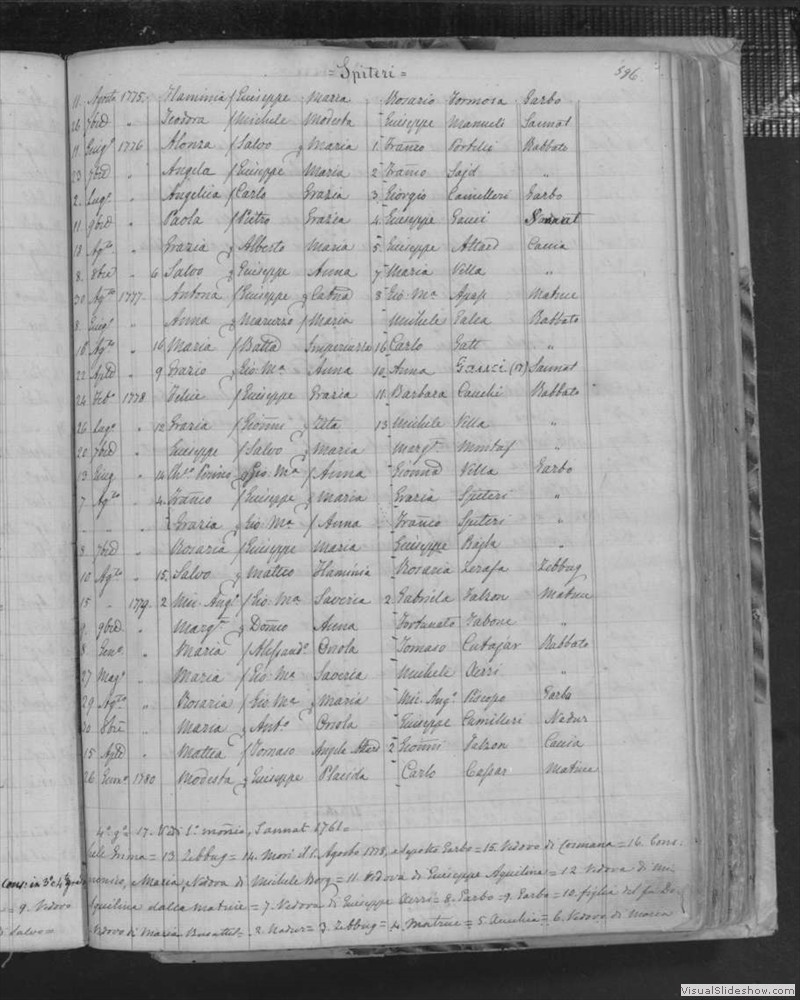 = Spiteri = 596
11. Agosto 1775. Flaminia f Giuseppe Maria Rosario Formosa Garbo
26 7bre " Teodora f Michele Modesta Giuseppe Manueli Sannat
11 Giug.o 1776 Alonza f Salvo g Maria 1. Franco Portelli Rabbato
23 7bre " Angela f Giuseppe Maria 2 Franco Said "
2. Lugl. " Angelica f Carlo Grazia 3 Giorgio Camilleri Garbo
11. 9bre " Paola f Pietro Grazia 4. Giuseppe Gauci Sannat
18. Ag.to " Grazia g Alberto Maria 5. Giuseppe Attard Caccia
8. 8bre " 6 Salvo g Giuseppe Anna 7 Maria Villa "
30 Ag.to 1777. Antona f Giuseppe g Catnd 8 Gio M.a Apap Matrice
8. Giug.o " Anna g Maruzzo f Maria Michele Galea Rabbato
18. Ag.to " 16 Maria f Batta Imperiuzza 16 Carlo Gatt "
22 Aple " 9 Grazio g Gio M.a Anna 10. Anna Gauci (r) Sannat
24 Feb.o 1778 Felice f Giuseppe Grazia 11. Barbara Cauchi Rabbato
26 Lug.o " 12 Grazia f Gionni g Rita 13 Michele Villa "
20 7bre " Giuseppe f Salvo g Maria Marg.ta Mintuf "
13 Giug. " 14. Pinino g Gio M.a f Anna Gionna Villa Garbo
7. Ag.to " 4. Franco f Giuseppe g Maria Grazia Spiteri "
" " " Grazia g Gio: M.a f Anna Franco Spiteri "
8. 7bre " Rosaria f Giuseppe Maria Giuseppe Bajla "
10 Ag.to " 15. Salvo g Matteo Flaminia Rosaria Zerafa Zebbug
15 " 1779. 2 Mic. Ang.o f Gio. M.a Saveria 2. Gabriela Falzon Matrice
9. 9bre " Marg.ta g Domco Anna Fortunato Tabone "
8 Gen.o " Maria f Alessand.o Orsola Tomaso Cutajar Rabbato
27 Mag.o " Maria f Gio: M.a Saveria Michele Xerri "
29 Ag.to " Rosaria f Gio: M.a g Maria Mic. Ang.o Piscopo Garbo
30 8bre " Maria g Ant.o Orsola Giuseppe Camilleri Nadur
15 Aple " Mattea f Tomaso Angela Attard 2 Gionni Falzon Caccia
26 Genn.o 1780 Modesta g Giuseppe Placida Carlo Caspar Matrice
4.o g.o 17. Vedi Sannat 1761.
Emma = 13. Zebbug = 14. Morì il 1. Agosto 1778, e sepolto Garbo = 15. Vedovo di Cormana = 16. Cons.
Cons: in 3.o e 4.o grado
Maria, Vedova di Michele Borg = 11. Vedova di Giuseppe Aquilina = 12 Vedova di Mi-
= 9. Vedovo Aquilina dalla Matrice = 7. Vedova di Giuseppe Xerri = 8. Garbo = 9. Garbo = 10. figlia del fu Do-
di Salvo = Vedovo di Maria Busuttil = 2. Nadur = 3. Zebbug = 4. Matrice = 5. = 6. Vedovo di Maria
VisualSlideshow.com